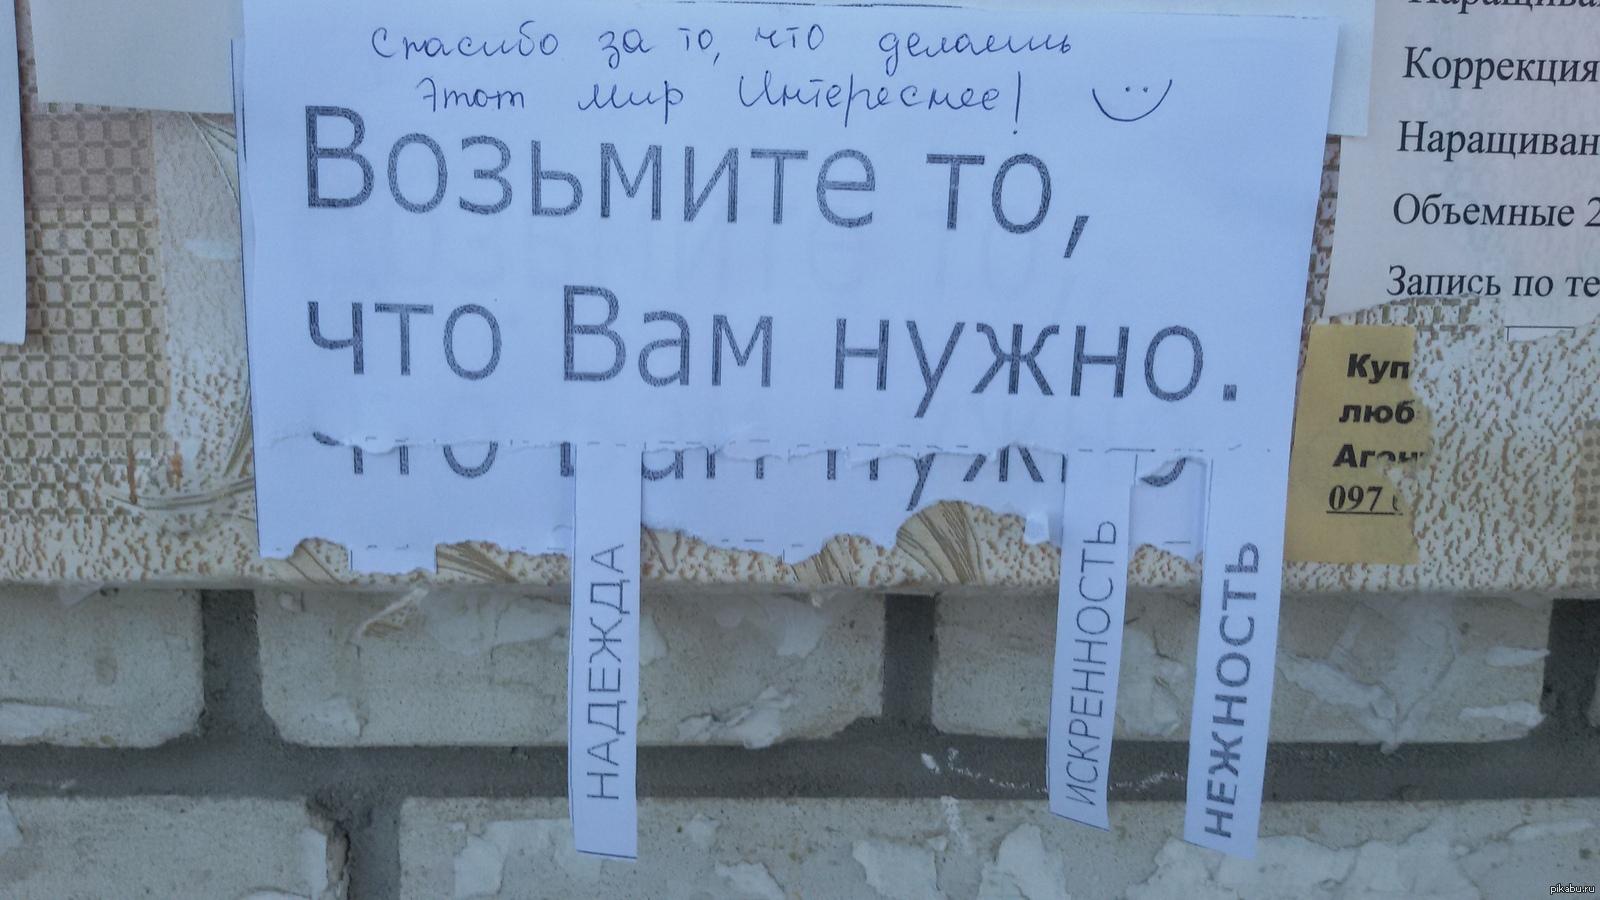 Спасибо за то, что делаешь
Этот мир Интереснее!
Возьмите то,
что Вам нужно.
НАДЕЖДА
ИСКРЕННОСТЬ
НЕЖНОСТЬ
Коррекция
Объемные 2
Запись по
097
pikabu.ru